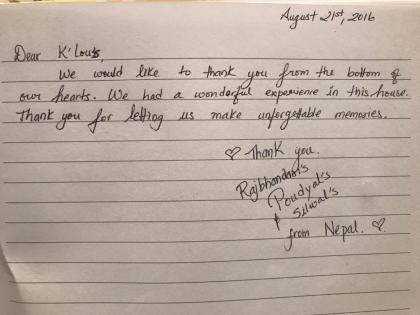 August 21st, 2016
Dear K'Lou's,
We would like to thank you from the bottom of
our hearts. We had a wonderful experience in this house.
Thank you for letting us make unforgettable memories.
♡ Thank you.
Rajbhandari's
Poudyal's
& Silwal's
from Nepal. ♡